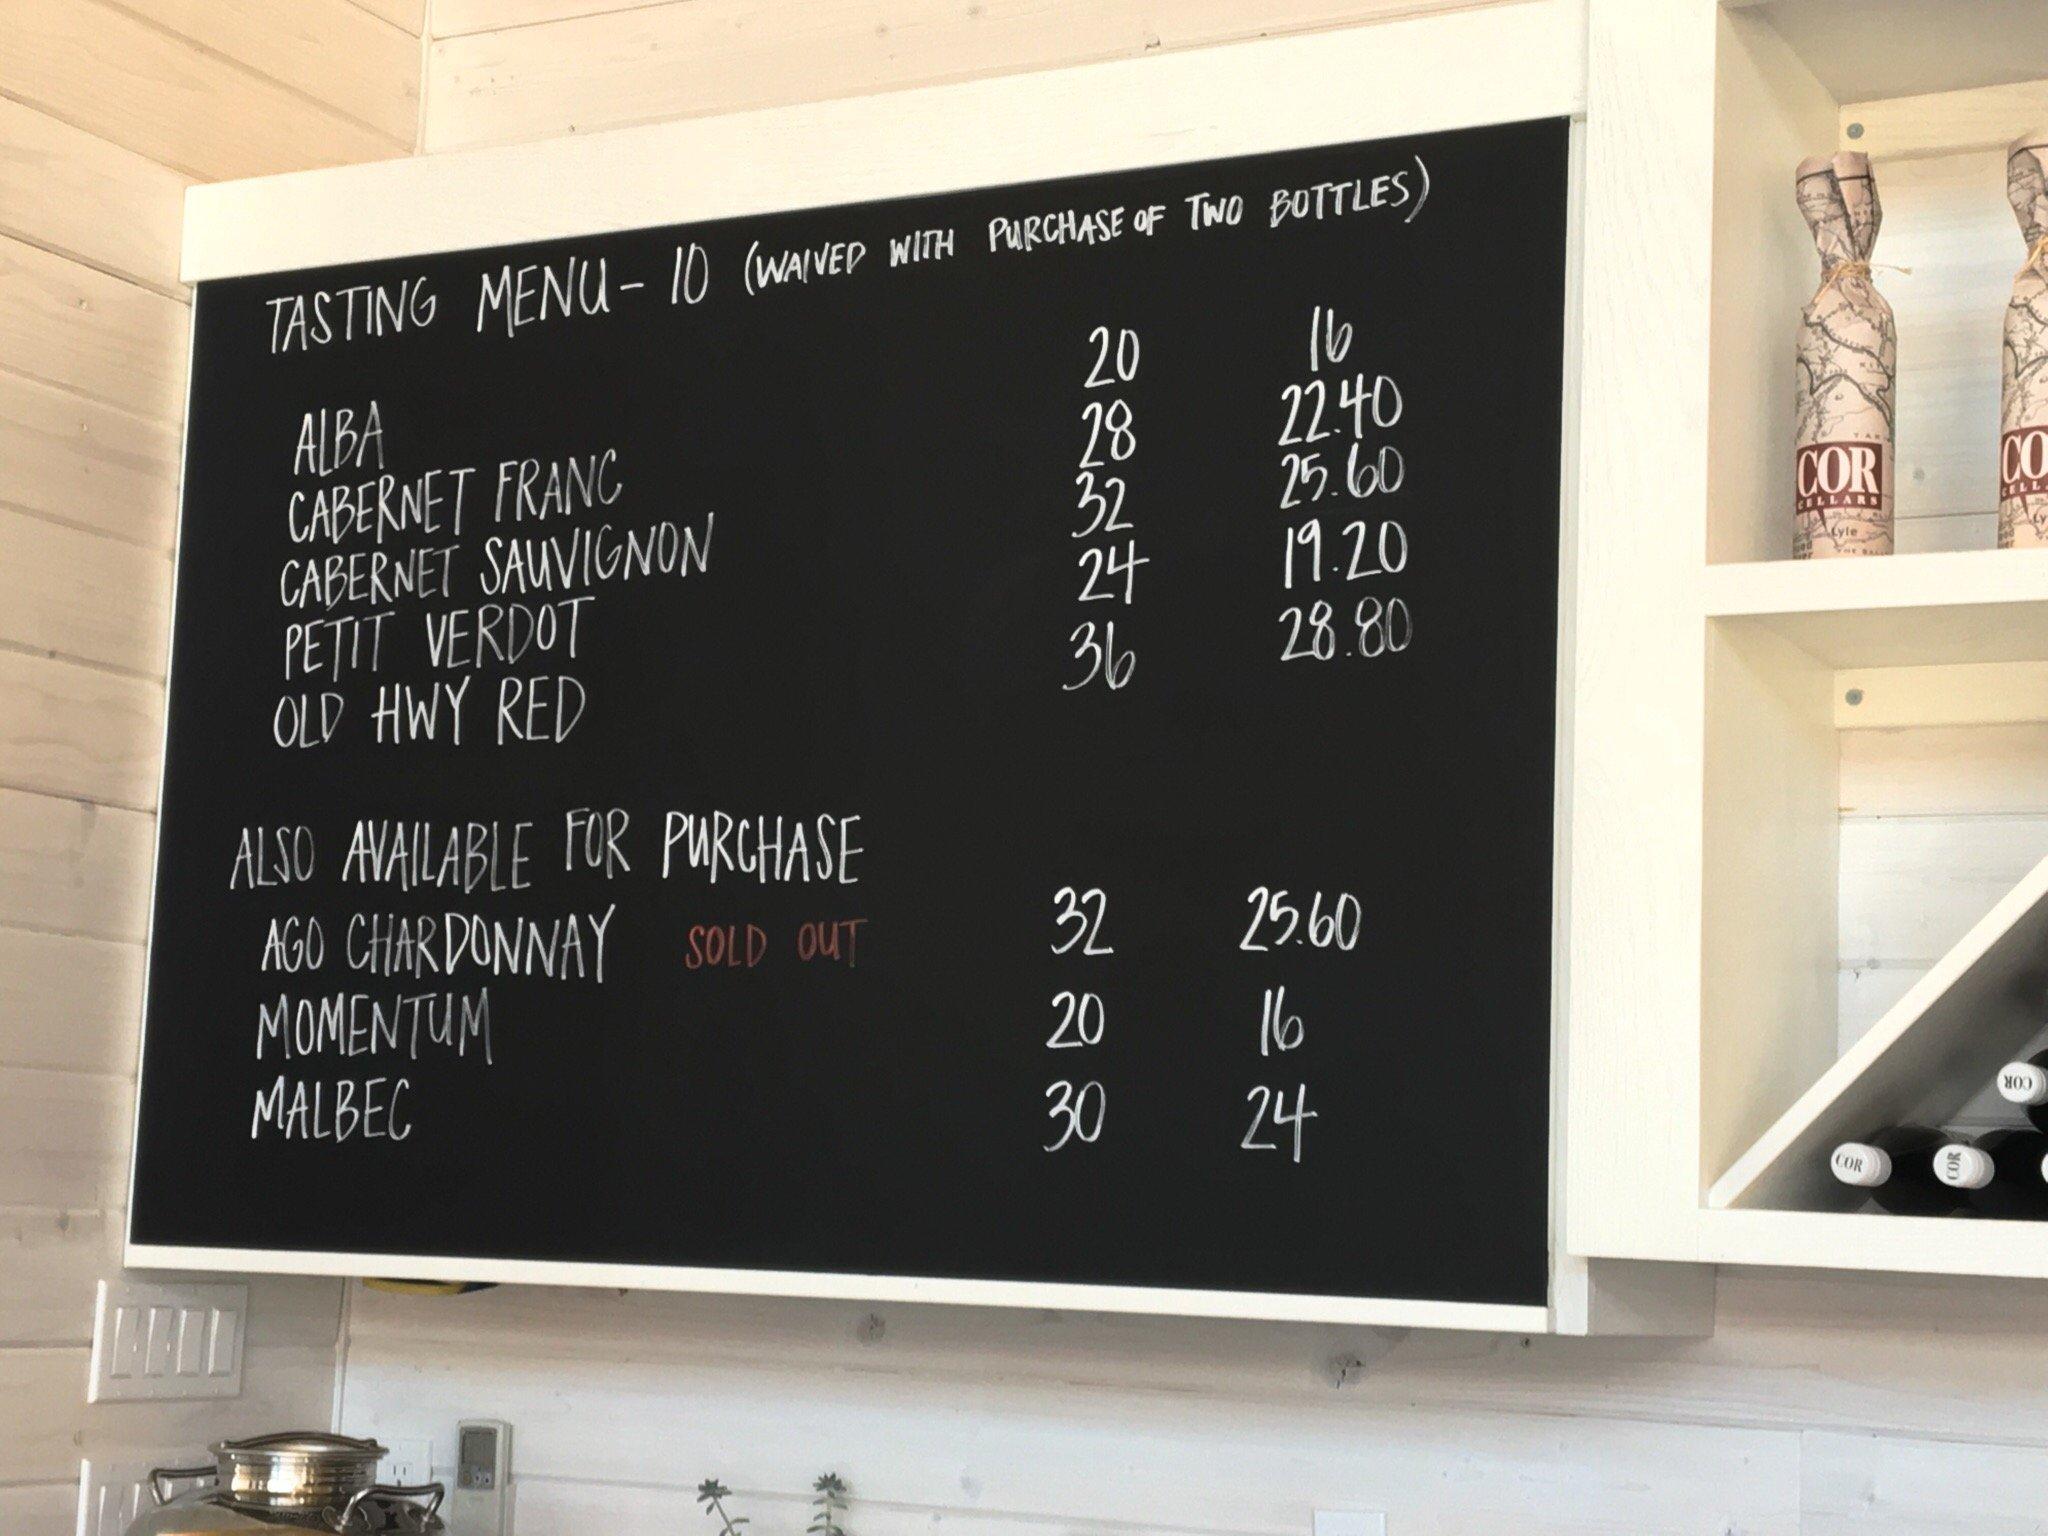 TASTING MENU - 10 (WAIVED WITH PURCHASE OF TWO BOTTLES)
ALBA 20 16
CABERNET FRANC 28 22.40
CABERNET SAUVIGNON 32 25.60
PETIT VERDOT 24 19.20
OLD HWY RED 36 28.80
ALSO AVAILABLE FOR PURCHASE
AGO CHARDONNAY SOLD OUT 32 25.60
MOMENTUM 20 16
MALBEC 30 24
COR
CELLARS
Lyle
CO
CELL
COR
COR
COR